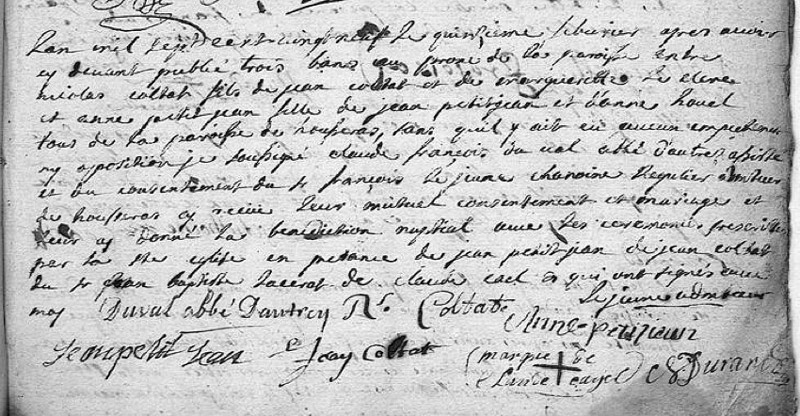 Lan mil sept cent vingt neuf le quinzieme febvrier apres avoir
ey devant publié trois bans au prone de la paroisse entre
nicolas coltat fils de jean coltat et de marguerette le clerc
et anne petit jean fille de jean petitjean et danne havel
tous de la paroisse de housseras, sans quil y ait eu aucun empechement
ny aposition je soussigné claude françois du val abbé dautrey assisté
et du consentement du Sr françois le jeune chanoine regulier admteur
de housseras ay recue leur mutuel consentement et mariage et
leur ay donné la benediction nuptial avec les ceremonies prescrittes
par la Ste eglise en presance de jean petitjean de jean coltat
du Sr jean baptiste de claude cael qui ont signés avec
moy Duval abbé Dautrey N. Coltat Lejeune admteur
Anne petitjean
Jean petit Jean Jean Coltat
marque de
N Durand